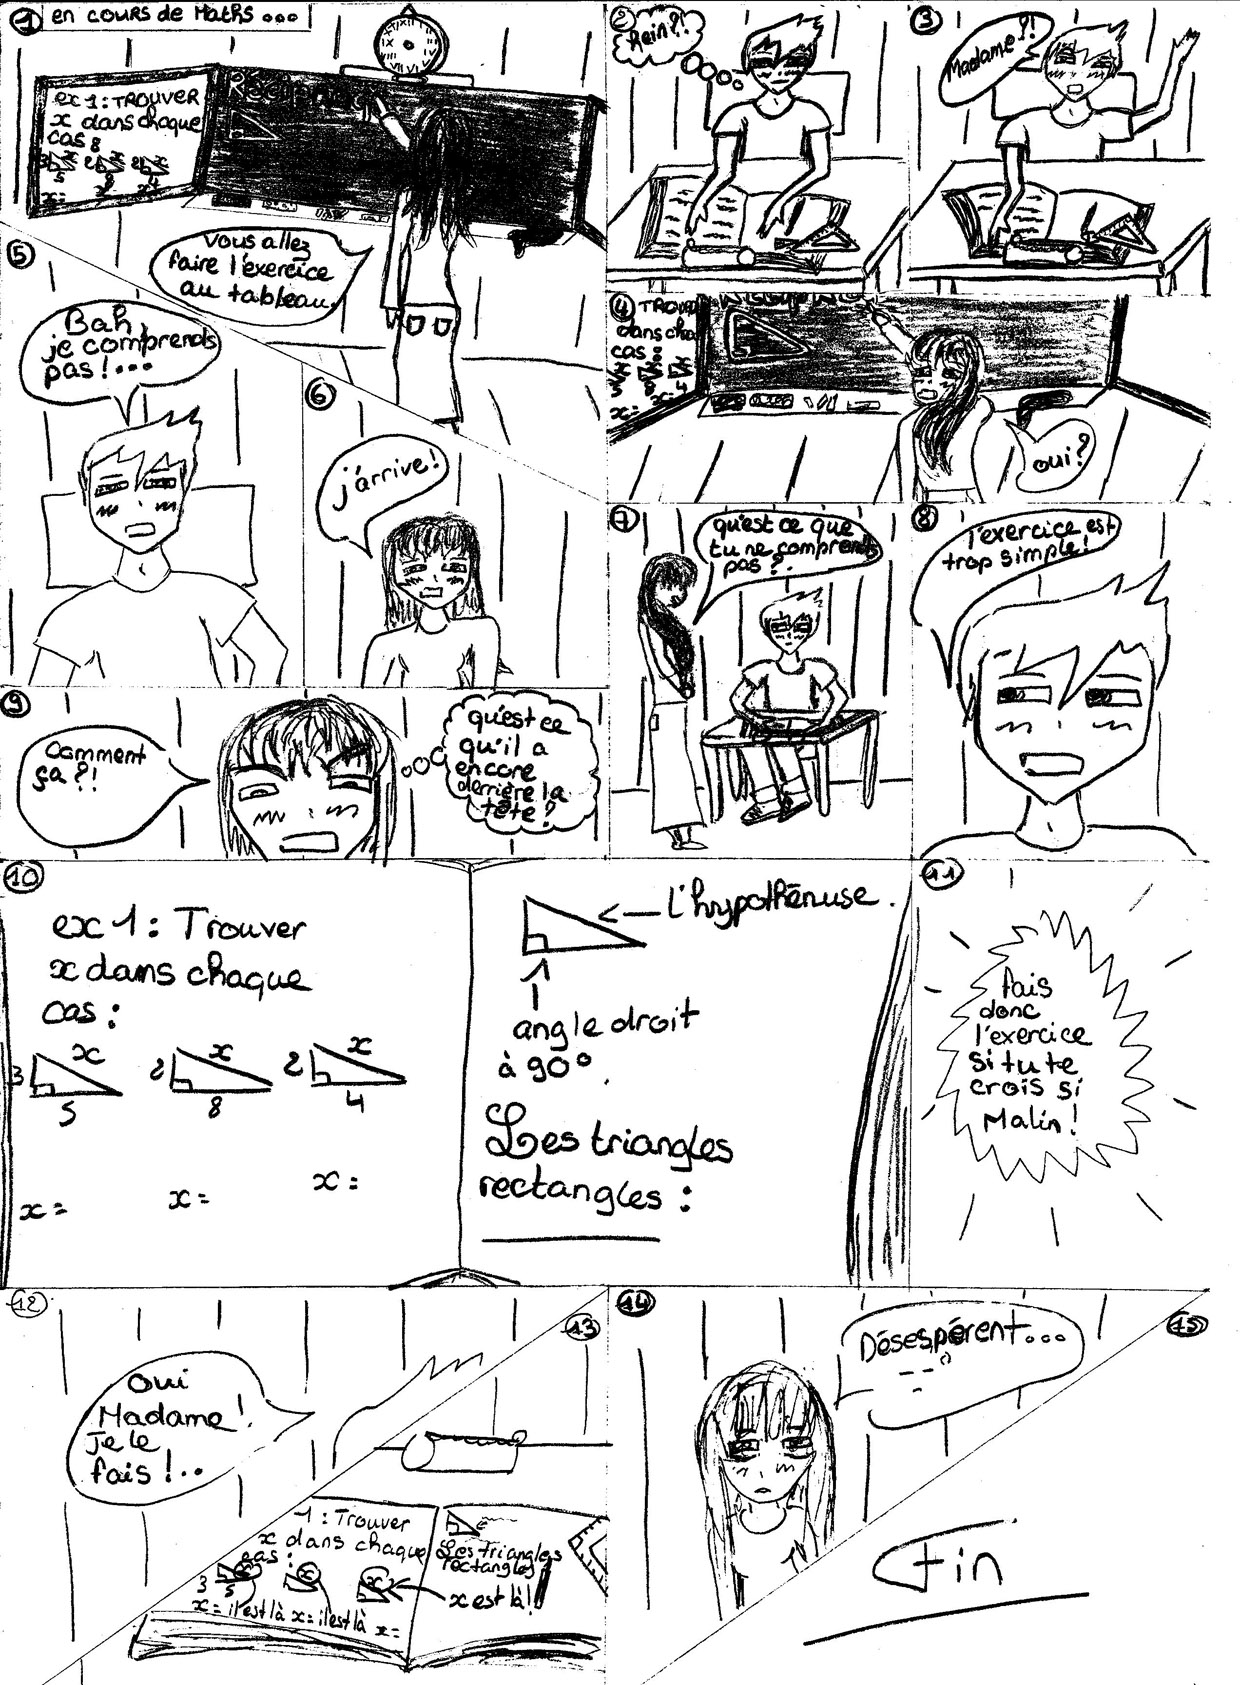 1
en cours de Maths ...
ex 1 : TROUVER
x dans chaque
cas :
3 x 2 x 2 x
5 8 4
x =
vous allez
faire l'exercice
au tableau.
2
Hein ?!
3
Madame ?!
4
TROUV
dans cha
cas
x = x =
oui ?
5
Bah,
je comprends
pas ! ...
6
j'arrive !
7
qu'est ce que
tu ne comprends
pas ? .
8
l'exercice est
trop simple !
9
Comment
ça ?!
qu'est ce
qu'il a
encore
derrière la
tête ?
10
ex 1 : Trouver
x dans chaque
cas :
3 x 2 x 2 x
5 8 4
x = x = x =
L'hypothénuse .
angle droit
à 90° .
Les triangles
rectangles :
11
fais
donc
l'exercice
si tu te
crois si
Malin !
12
Oui
Madame !
Je le
fais ! ..
13
1 : Trouver
x dans chaque
cas :
3 x x x
5
x = il est là x = il est là x =
Les triangles
rectangles
x est là !
14
Désespérent ...
15
Fin